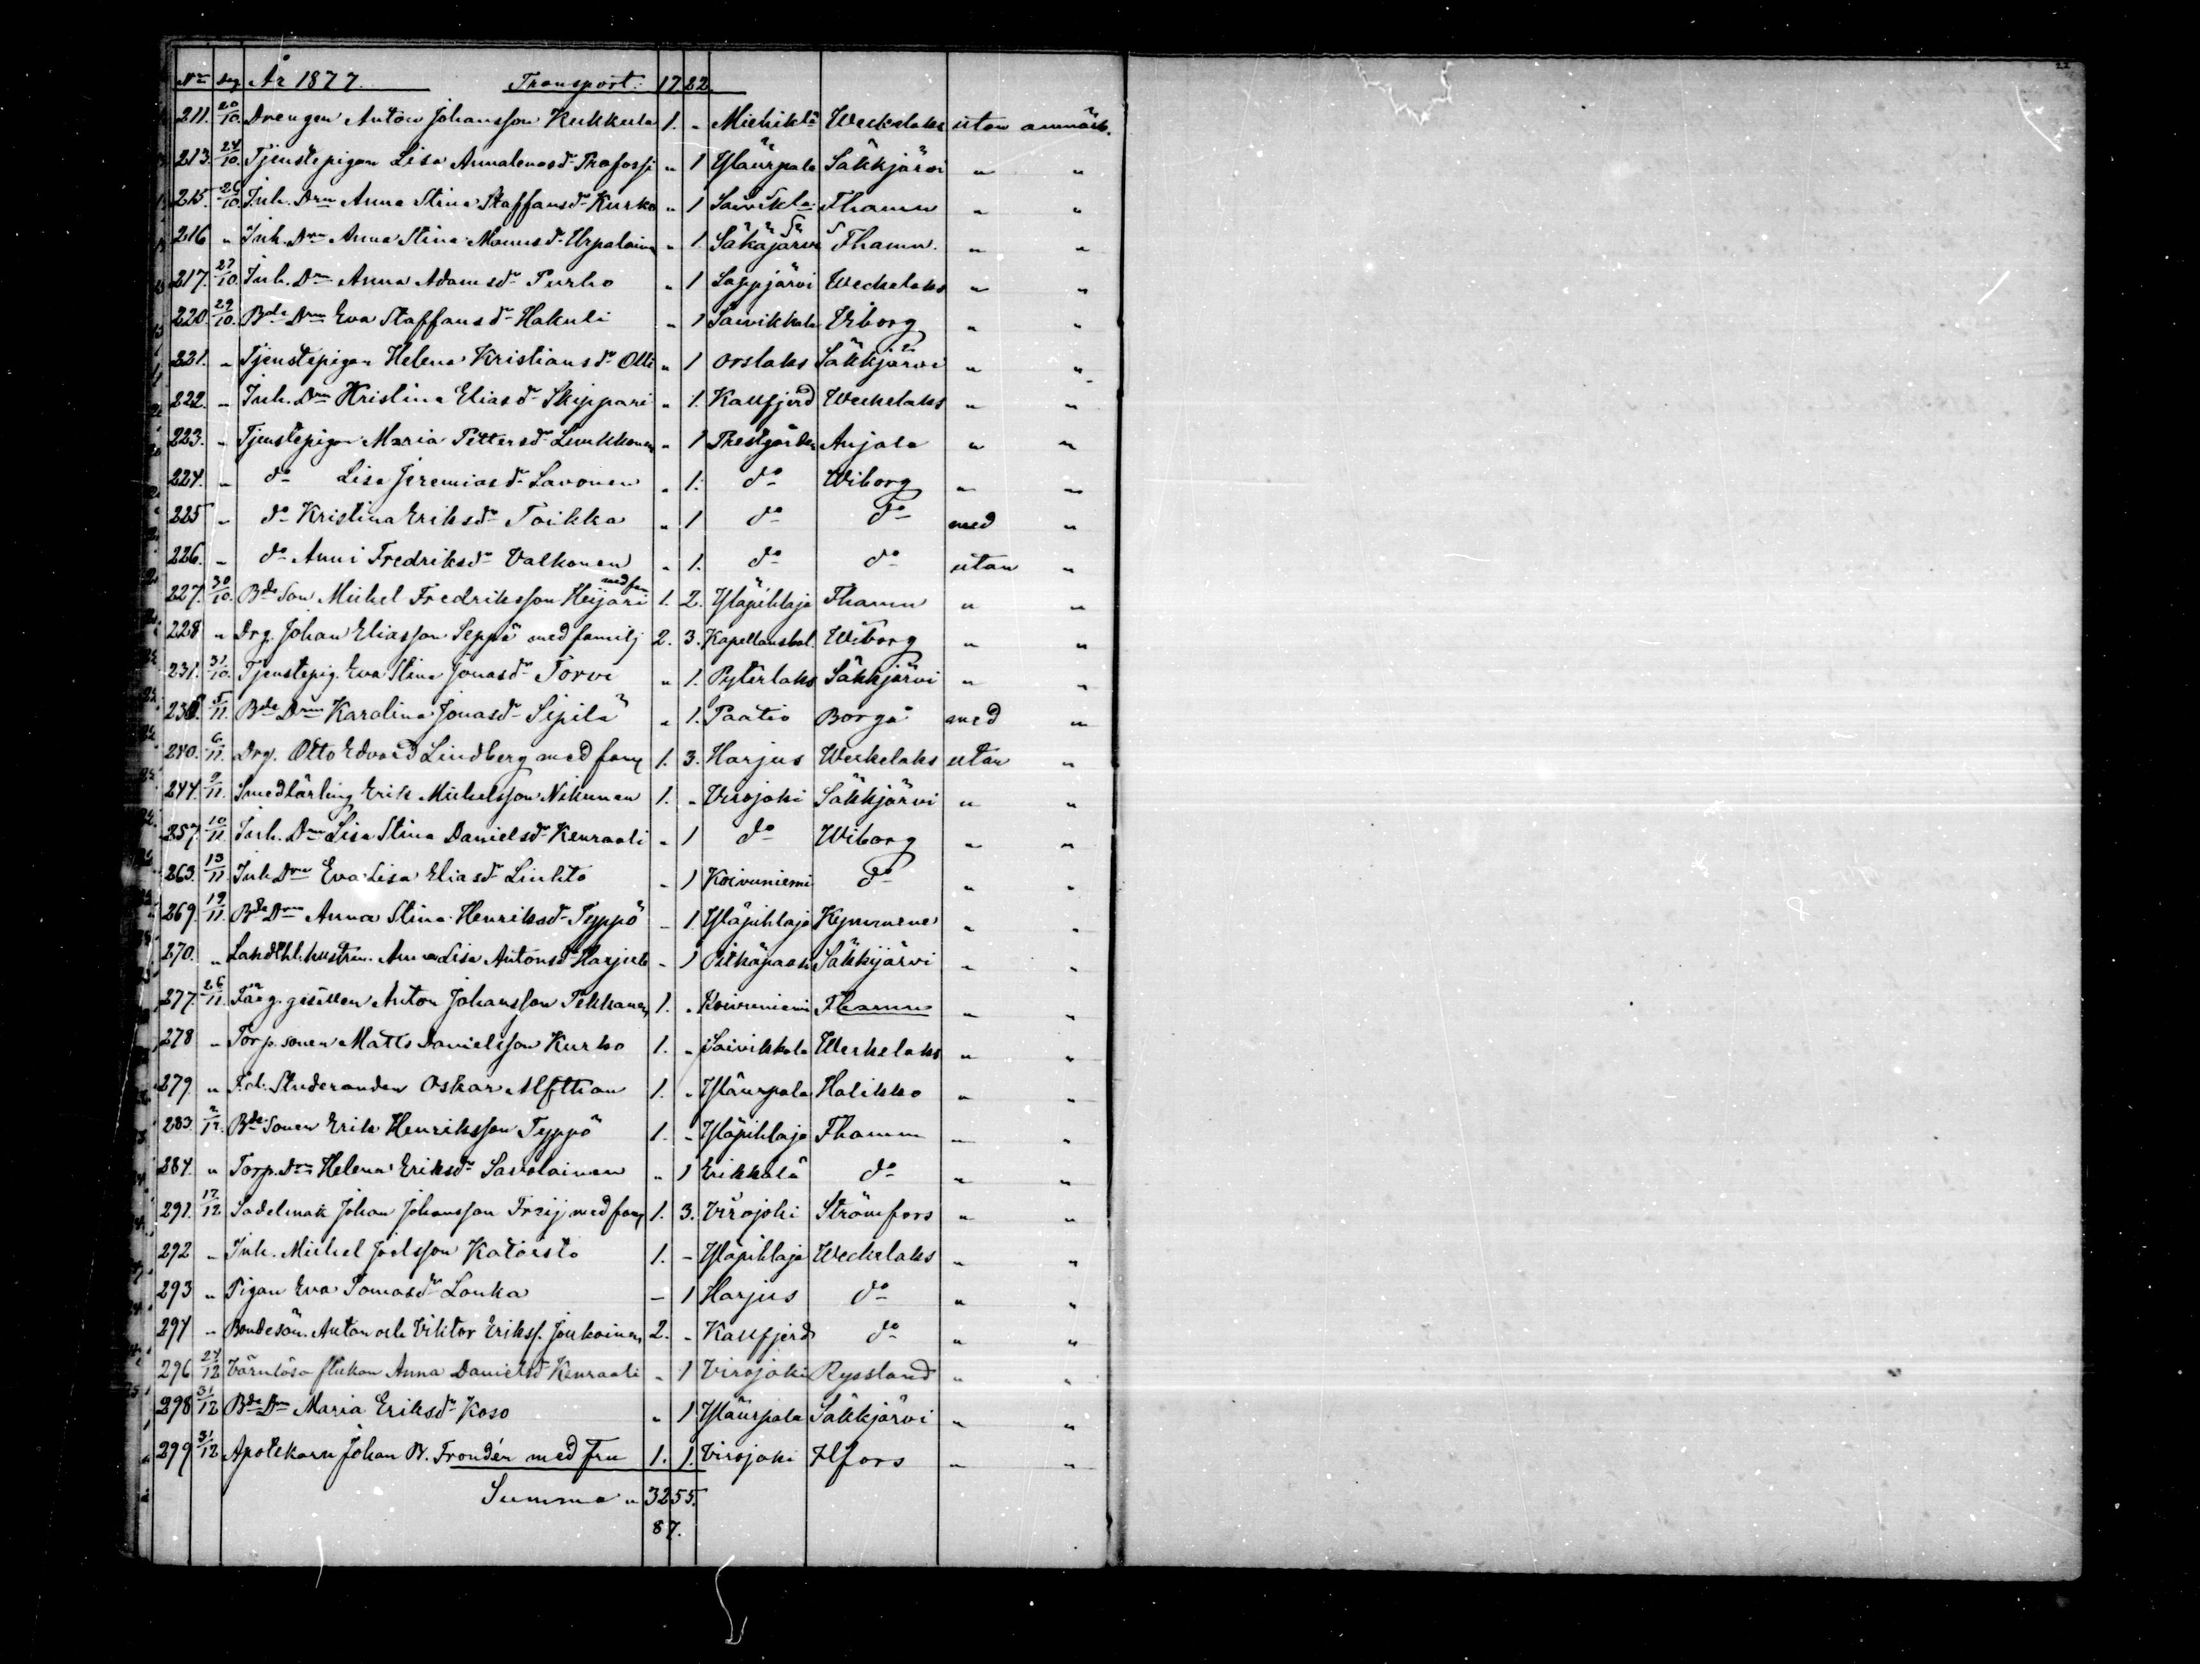 No dag År 1877. Transport: 17 22
211. 20/10. Drengen Anton Johansson Kukkula 1. " Miehikla Weckelaks utan anmärk.
213. 24/10. Tjenstepigan Lisa Annalenasdr " 1 Yläurpala Säkkjärvi " "
215. 26/10. Inh. Drn Anna Stina Staffansdr Kurko " 1 Saivikla Fhamn " "
216 " Inh. Drn Anna Stina Monusdr Urpalain " 1. Säkäjärvi Fhamn. " "
217. 27/10. Inh. Drn Anna Adamsdr Purho " 1 Lappjärvi Weckelaks " "
220. 29/10. Bde Drn Eva Staffansdr Hakuli " 1 Saivikkala Viborg " "
221. " Tjenstepigan Helena Kristiansdr Olli " 1 Orslaks Säkkjärvi " "
222. " Inh. Drn Kristina Eliasdr Skippari " 1. Kallfjerd Weckelaks " "
223. " Tjenstepigan Maria Pettersdr Luukkonen " 1 Prestgården Anjala " "
224. " do Lisa Jeremiasdr Savonen " 1. do Wiborg " "
225 " do Kristina Eriksdr Toikka " 1 do do med "
226. " do Anni Fredriksdr Valkonen " 1. do do utan "
227. 30/10. Bde Son Michel Fredriksson Heijari med fam 1. 2. Yläpihlaja Fhamn " "
228 " Drg. Johan Eliasson Seppä med familj 2. 3. Kapellansbol. Wiborg " "
231. 31/10. Tjenstepig. Eva Stina Jonasdr Torvi " 1. Pyterlaks Säkkjärvi " "
5/11. Bde Drn Karolina Jonasdr Sipilä " 1. Paatio Borgå med "
240. 6/11. Drg. Otto Edvard Lindberg med famj 1. 3. Harjus Weckelaks utan "
244. 9/11. Smedlärling Erik Michelsson Nikunen 1. " Virojoki Säkkjärvi " "
257. 10/11. Inh. Drn Lisa Stina Danielsdr Kenraali " 1 do Wiborg " "
263. 13/11. Inh Drn Eva Lisa Eliasdr Liuhto " 1 Koivuniemi do " "
269. 19/11. Bde Drn Anna Stina Henriksdr Typpö - 1. Yläpihlaja Kymmene " "
270. " Anna Lisa Antonsdr Harjula - 1 Pitkäpaasi Säkkijärvi " "
277. 26/11. Färg. gesällen Anton Johansson Pekkanen 1. " Koivuniemi Fhamn " "
278 " Torp. sonen Matts Danielsson Kurko 1. " Saivikkala Weckelaks " "
279. " F.d. Studeranden Oskar Alfthan 1. " Yläurpala Halikko " "
283. 2/12. Bde Sonen Erik Henriksson Typpö 1. - Yläpihlaja Fhamn " "
284. " Torp. Drn Helena Eriksdr Savolainen " 1 Erikkala do " "
291. 17/12 Sadelmak Johan Johansson Fraij med famj 1. 3. Virojoki Strömfors " "
292 " Inh. Michel Joelsson Katoisto 1. - Yläpihlaja Weckelaks " "
293 " Pigan Eva Tomasdr Lonka - 1 Harjus do " "
294 " Bondesön. Anton och Viktor Erikss. Joukainen 2. " Kallfjerd do " "
296 24/12 Värnlösa flickan Anna Danielsd Kenraali " 1 Virojoki Ryssland " "
298 31/12 Bde Drn Maria Eriksdr Koso " 1 Yläurpala Säkkjärvi " "
299 31/12 Apotekarn Johan W. Frondén med fru 1. 1. Virojoki Hfors " "
Summa " 32 55.
87.